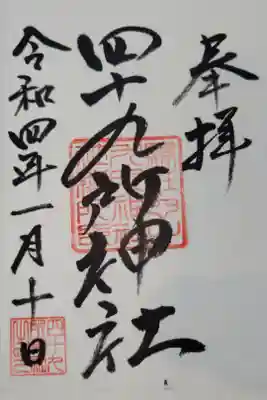 奉拝
四十九所神社
令和四年一月十日